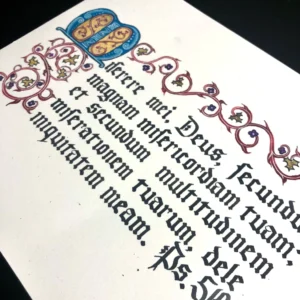 Miserere mei, Deus, secundu
magnam misericordiam tuam;
et secundum multitudinem
miserationem tuarum, dele
iniquitatem meam.
Ps.